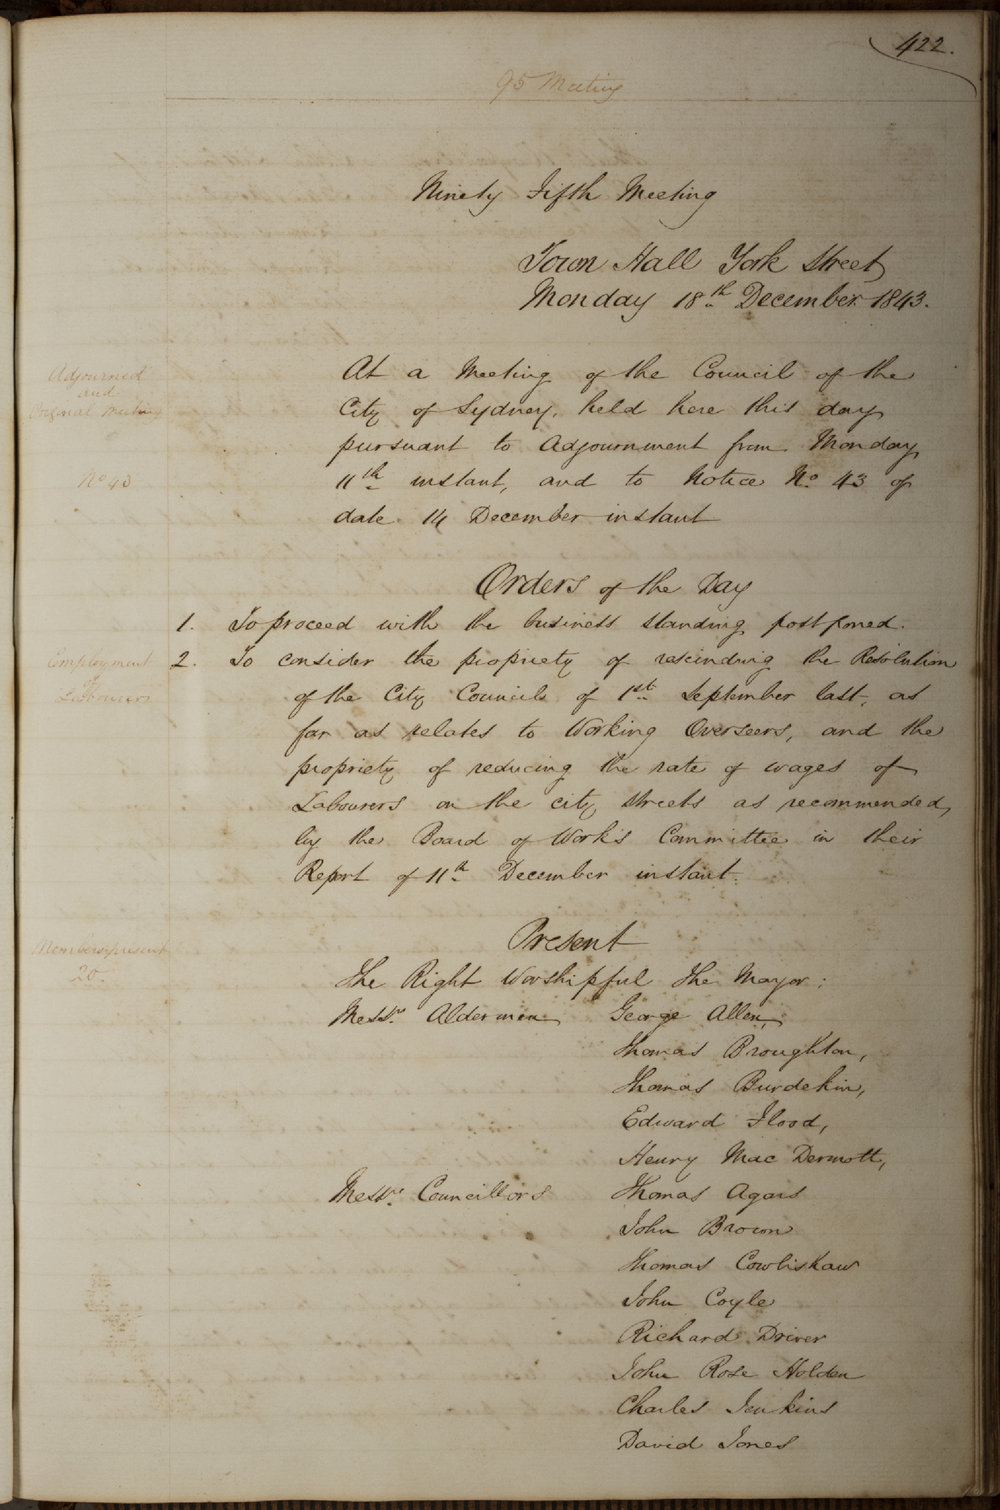 422.
95 Meeting
Ninety Fifth Meeting
Town Hall York Street
Monday 18th December 1843.
Adjourned
and
Original Meeting
No 43
At a Meeting of the Council of the
City of Sydney, held here this day
pursuant to Adjournment from Monday
11th instant, and to Notice No. 43 of
date 14 December instant
Orders of the Day
1. To proceed with the business standing postponed.
Employment
of
Labourers
2. To consider the propriety of rescinding the Resolution
of the City Councils of 1st September last, as
far as relates to Working Overseers, and the
propriety of reducing the rate of wages of
Labourers on the city streets as recommended,
by the Board of Works Committee in their
Report of 11th December instant.
Members present
20.
Present
The Right Worshipful The Mayor;
Messrs. Aldermen George Allen,
Thomas Broughton,
Thomas Burdekin,
Edward Flood,
Henry Mac Dermott,
Messrs. Councillors Thomas Agars
John Brown
Thomas Cowlishaw
John Coyle
Richard Driver
John Rose Holden
Charles Jenkins
David Jones